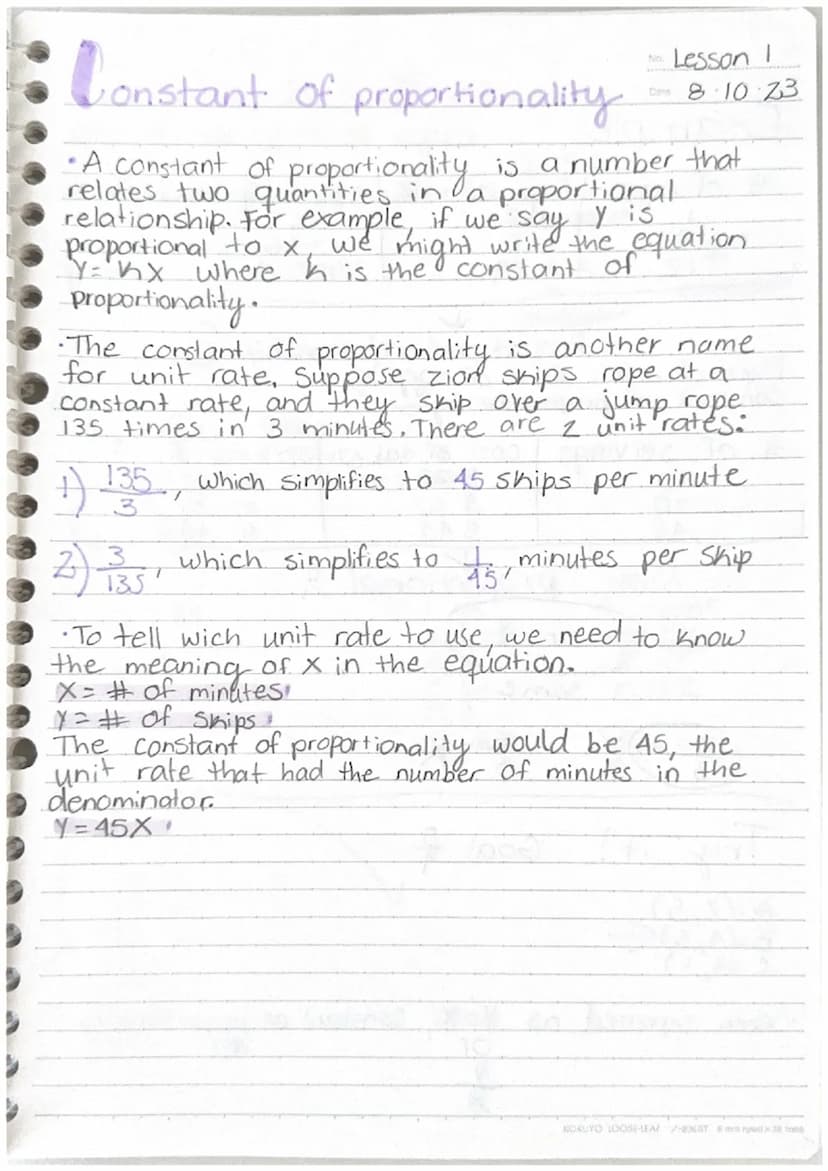 No. Lesson 1
Constant of proportionality
Date 8.10.23
• A constant of proportionality is a number that
relates two quantities in a proportional
relationship. For example, if we say y is
proportional to x, we might write the equation
Y=kx where k is the constant of
proportionality.
• The constant of proportionality is another name
for unit rate. Suppose zion skips rope at a
constant rate, and they skip over a jump rope
135 times in 3 minutes. There are 2 unit rates:
1) 135/3, which simplifies to 45 skips per minute
2) 3/135, which simplifies to 1/45, minutes per skip
• To tell wich unit rate to use, we need to know
the meaning of x in the equation.
X= # of minutes
Y= # of skips
The constant of proportionality would be 45, the
unit rate that had the number of minutes in the
denominator.
Y=45X
KOKUYO LOOSE-LEAF